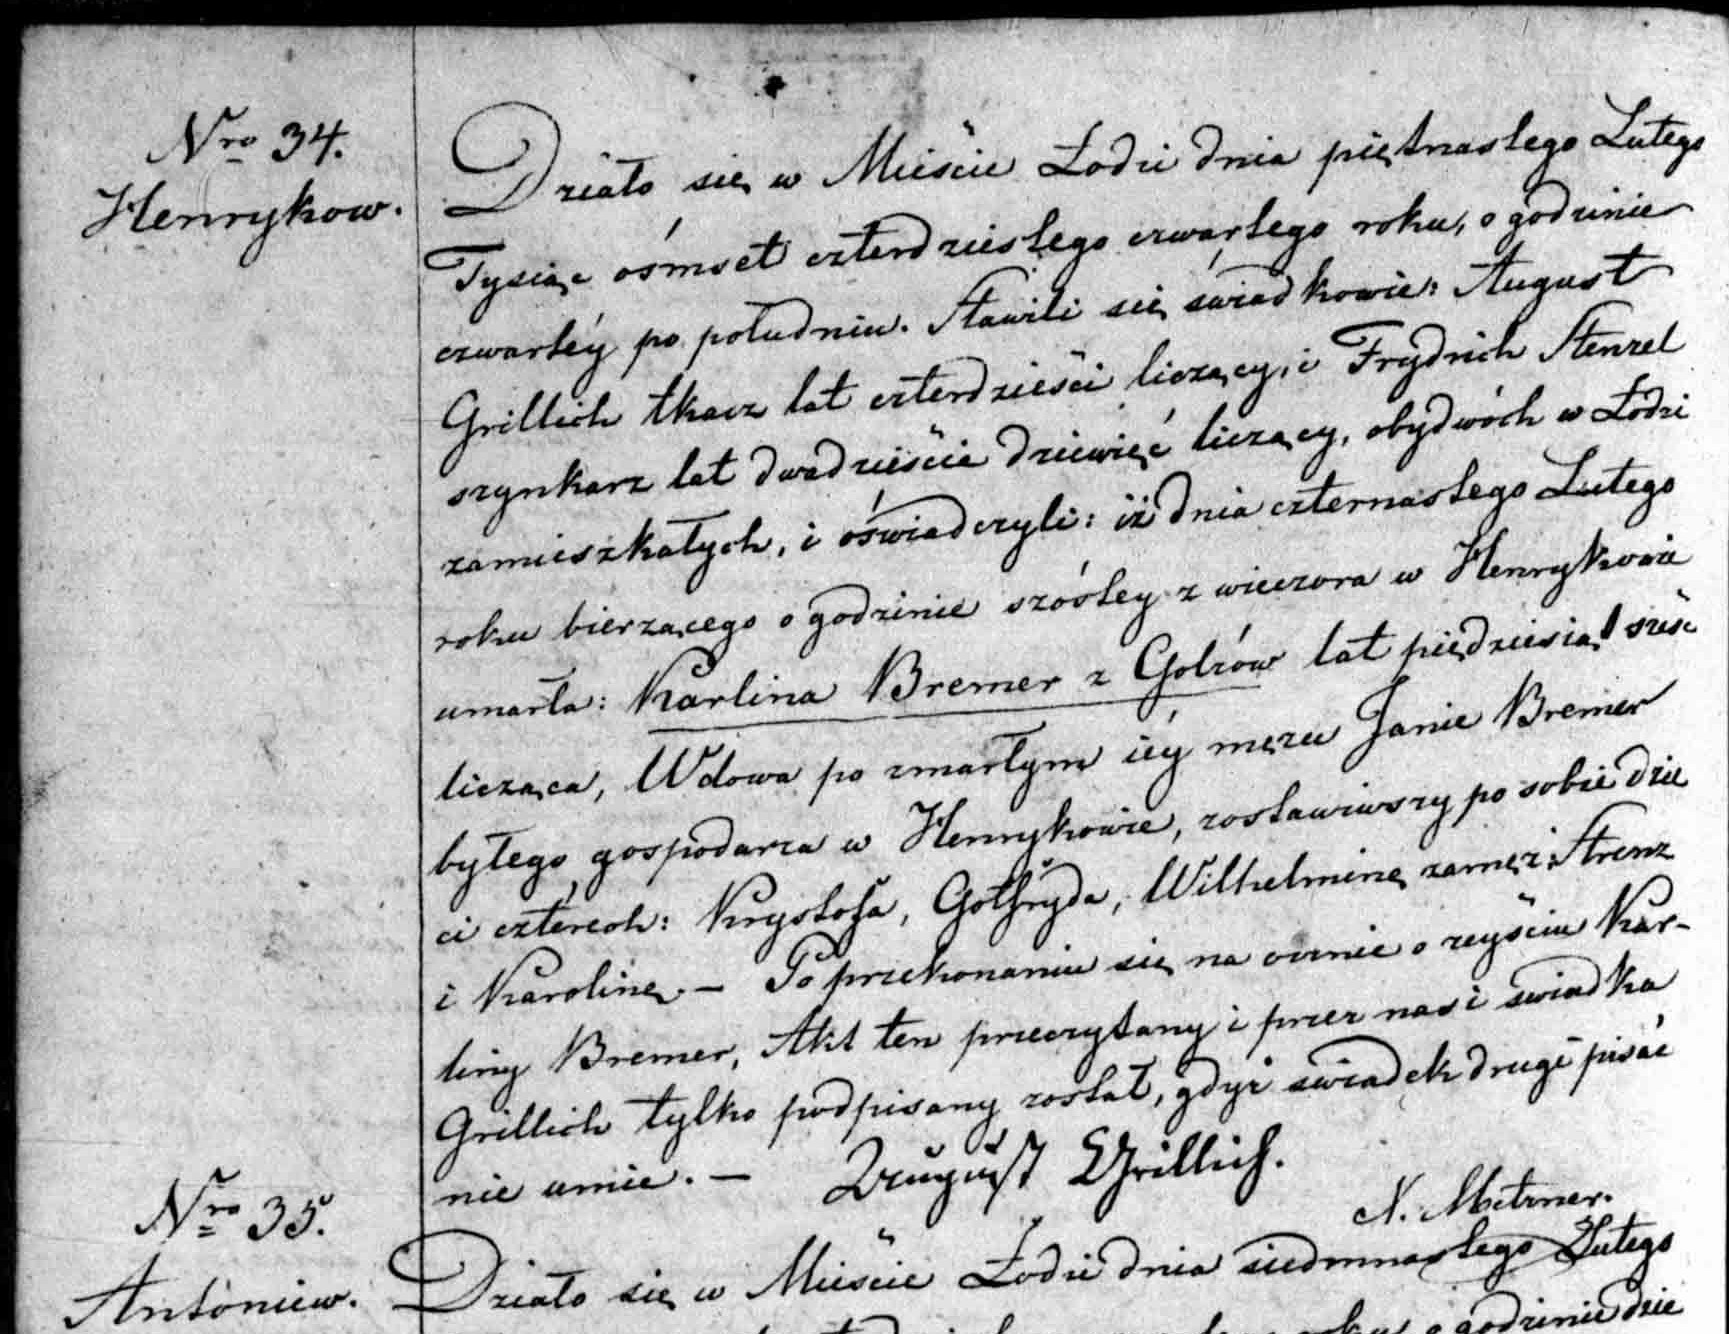 Nro 34.
Henrykow.
Działo się w Mieście Łodzi dnia piętnastego Lutego
Tysiąc ośmset czterdziestego czwartego roku, o godzinie
czwartéy po południu. Stawili się świadkowie: August
Grillich tkacz lat czterdzieści liczący, i Frydrich Stenzel
szynkarz lat dwadzieścia dziewięć liczący, obydwóch w Łodzi
zamieszkałych, i oświadczyli: iż dnia czternastego Lutego
roku bierzącego o godzinie szóstey z wieczora w Henrykowie
umarła: Karlina Bremer z Golzów lat piędziesiąt sześć
licząca, Wdowa po zmarłym iéy mężu Janie Bremer
byłego gospodarza w Henrykowie, zostawiwszy po sobie dzie
ci cztérech: Krystofa, Gotfryda, Wilhelminę zamęż: Strenz
i Karolinę. — Po przekonaniu się na ocznie o zeyściu Kar-
liny Bremer, Akt ten przeczytany i przez nas i świadka
Grillich tylko podpisany został, gdyż świadek drugi pisać
nie umie. — August Grillich.
Nro 35.
Antoniew.
Działo się w Mieście Łodzi dnia siedmnastego Lutego
roku o godzinie dzie